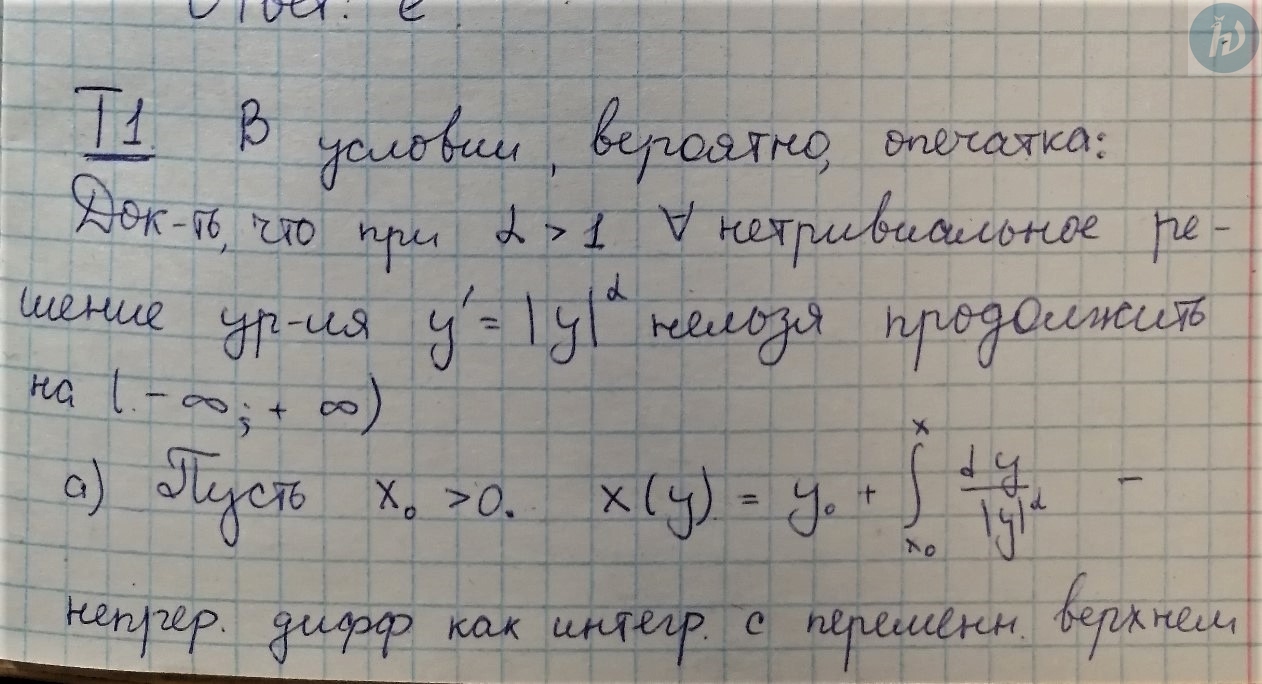 Ответ: e
T1. В условии, вероятно, опечатка:
Док-ть, что при α > 1 ∀ нетривиальное ре-
шение ур-ия y' = |y|^α нельзя продолжить
на (-∞; +∞)
а) Пусть x₀ > 0. x(y) = y₀ + ∫_{x₀}^{x} dy/|y|^α -
непрер. дифф как интегр. с переменн. верхнем